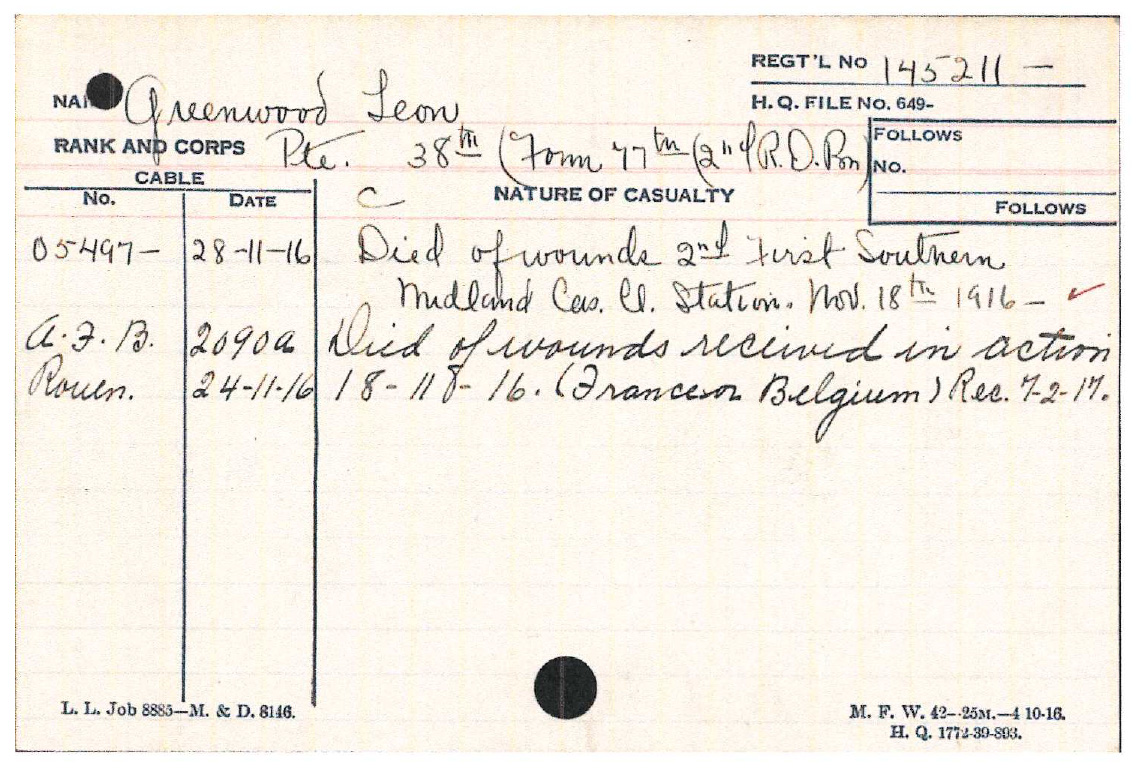 REGT'L No 145211 —
NA Greenwood Leon
H. Q. FILE No. 649-
RANK AND CORPS Pte. 38th (Form 77th (2nd R.D. Bn)
FOLLOWS
No.
FOLLOWS
CABLE
No. DATE
C NATURE OF CASUALTY
05497 - 28-11-16 Died of wounds 2nd First Southern
Midland Cas. Cl. Station. Nov. 18th 1916 - ✓
A. F. B. 2090a Died of wounds received in action
Rouen. 24-11-16 18 - 11 - 16. (France or Belgium) Rec. 7-2-17.
L. L. Job 8885—M. & D. 8146.
M. F. W. 42—25M.—4 10-16.
H. Q. 1772-39-893.